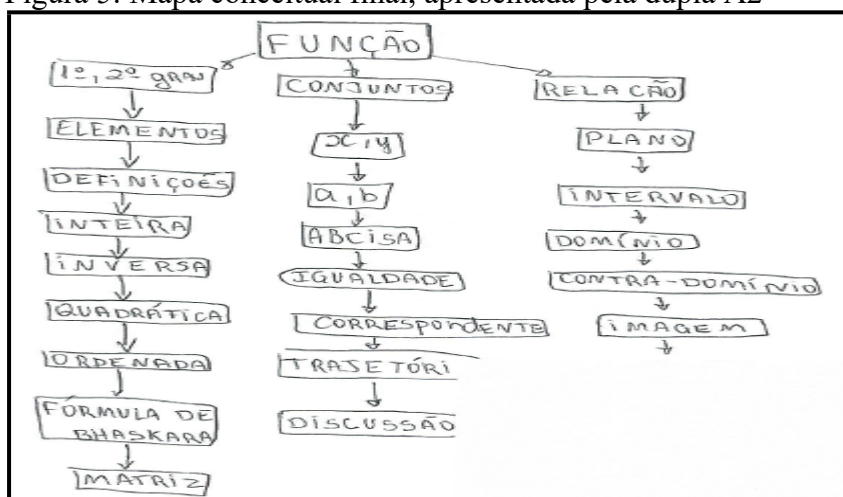 Figura 5: Mapa conceitual final, apresentada pela dupla A2
FUNÇÃO
1º, 2º grau
ELEMENTOS
DEFINIÇOÉS
INTEIRA
INVERSA
QUADRÁTICA
ORDENADA
FÓRMULA DE
BHASKARA
MATRIZ
CONJUNTOS
x, y
a, b
ABCISA
IGUALDADE
CORRESPONDENTE
TRAJETÓRI
DISCUSSÃO
RELACÃO
PLANO
INTERVALO
DOMÍNIO
CONTRA-DOMÍNIO
IMAGEM